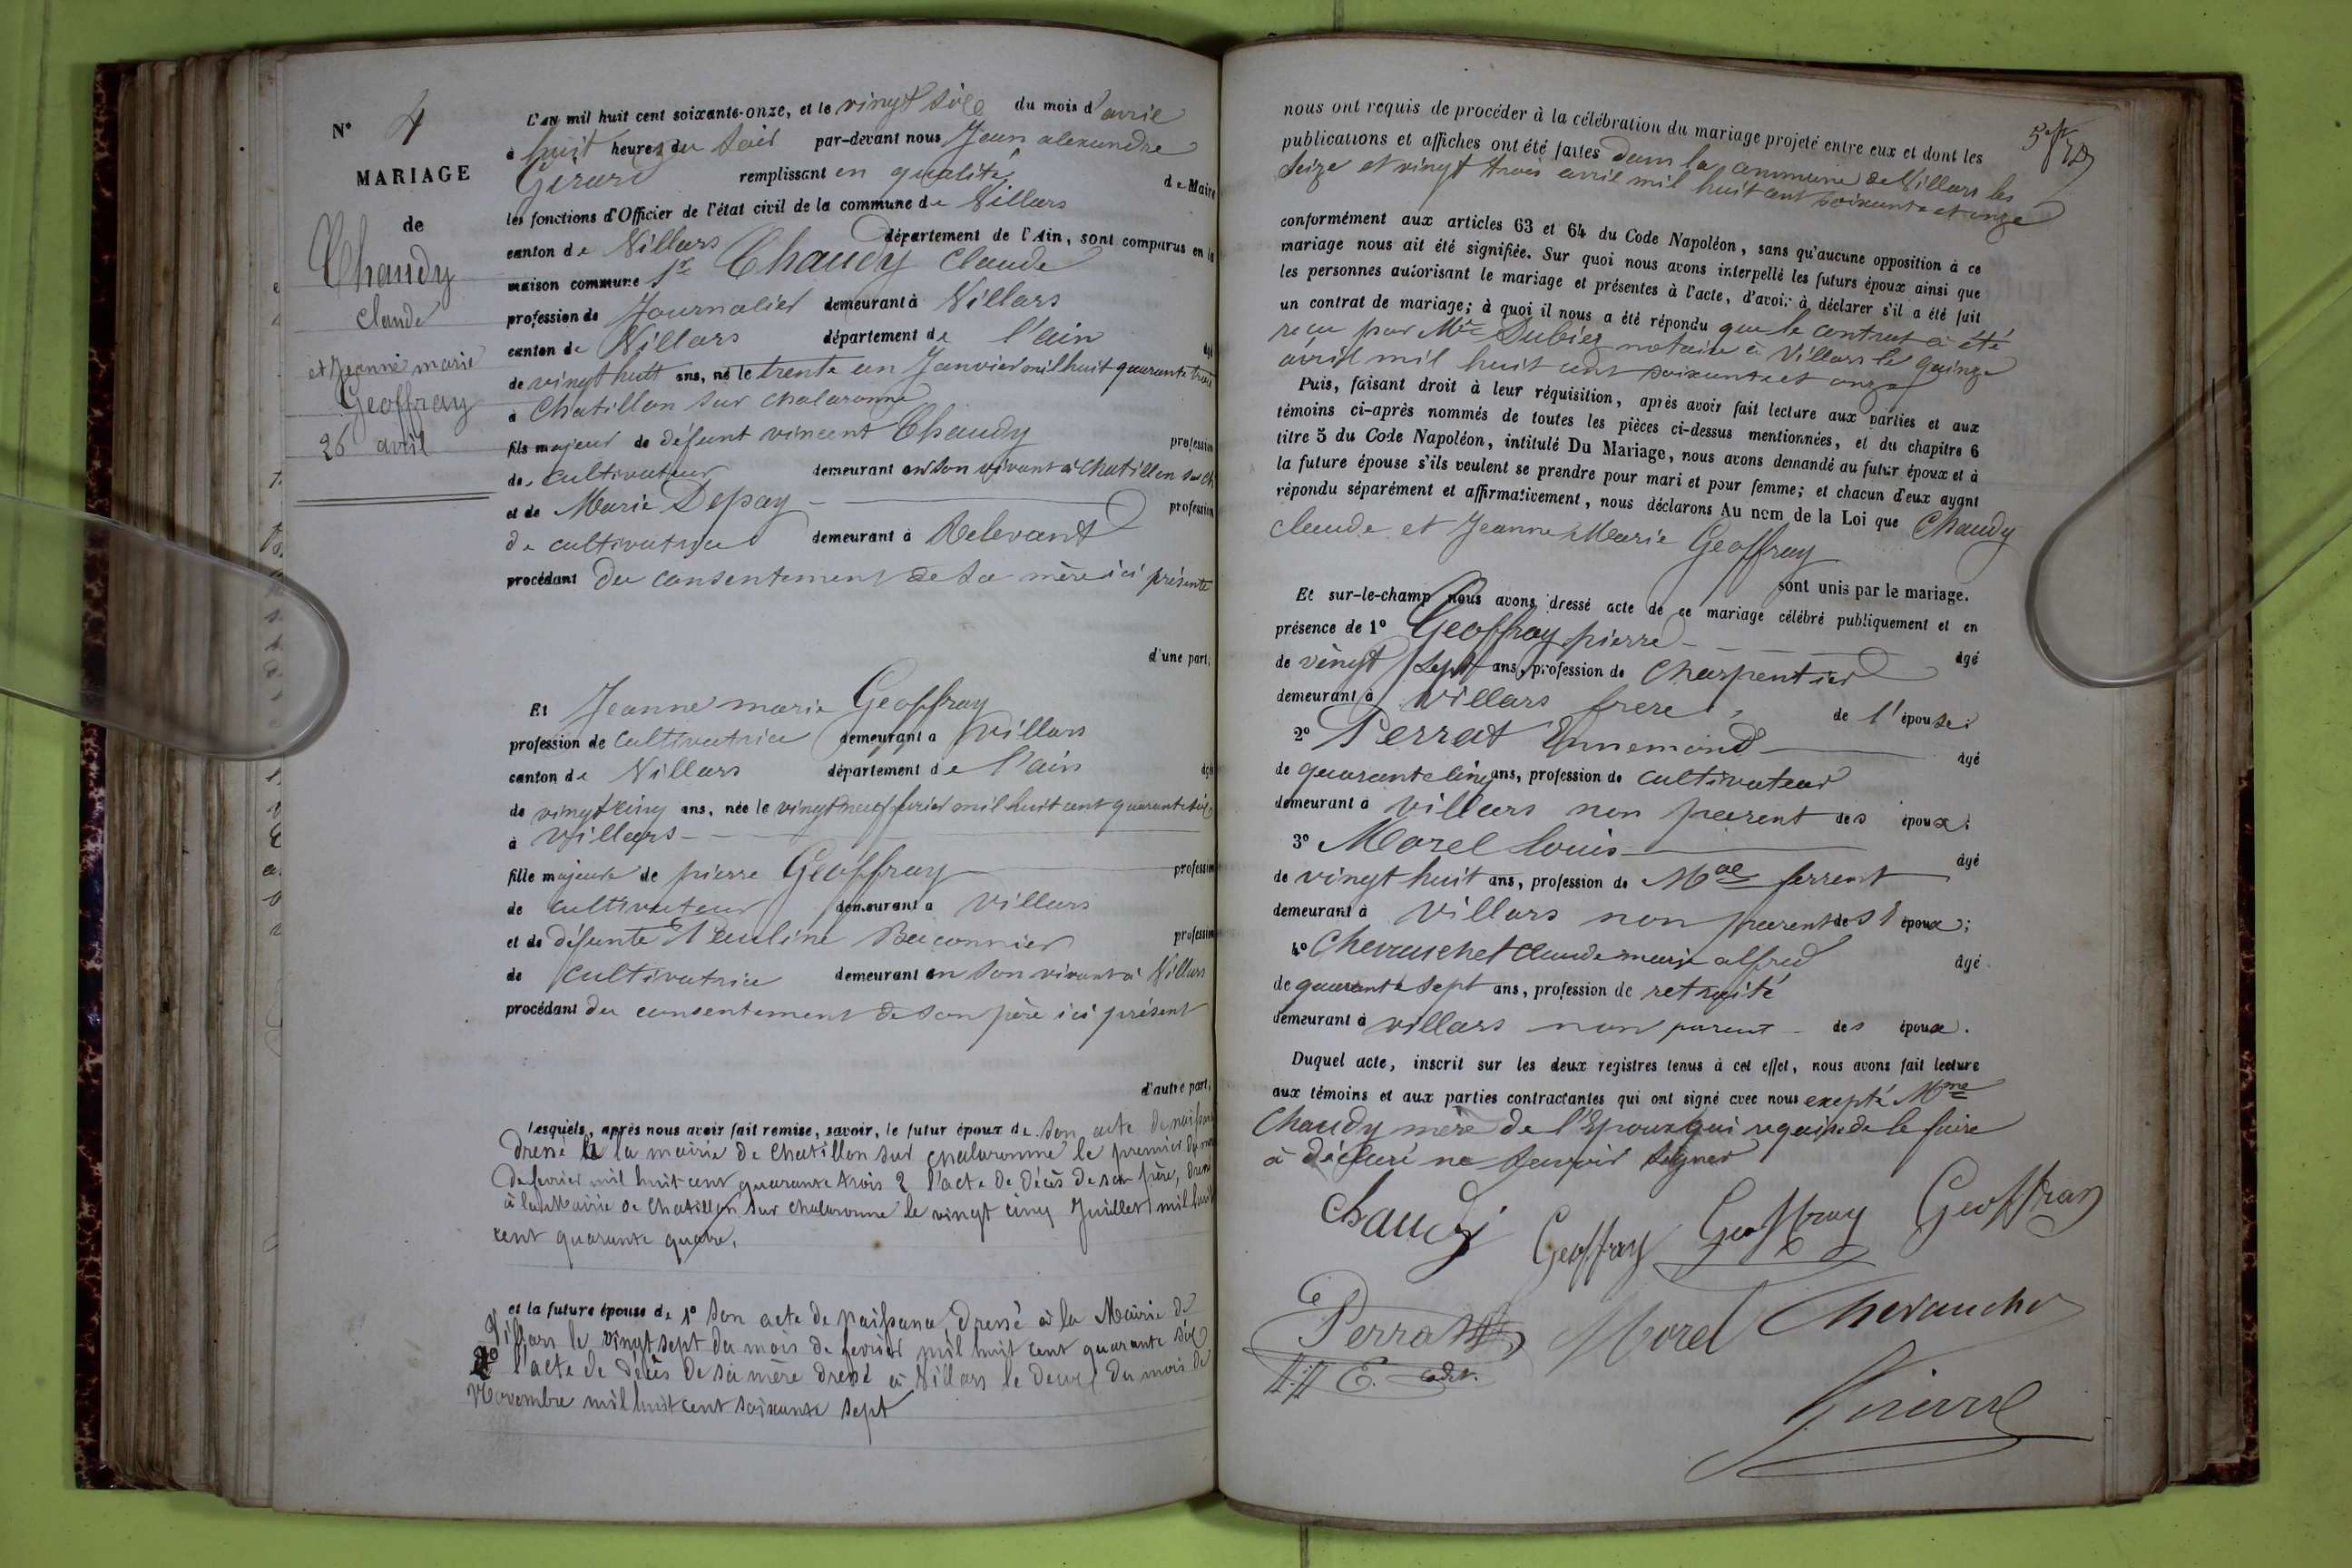 N° 4
MARIAGE
de
Chaudy
Claude
et Jeanne marie
Geoffray
26 avril
L'an mil huit cent soixante-onze, et le vingt six du mois d'avril
à huit heures du soir par-devant nous Jean alexandre
Girard remplissant en qualité de Maire
les fonctions d'Officier de l'état civil de la commune de Villars
canton de Villars département de l'Ain, sont comparus en la
maison commune 1° Chaudy Claude
profession de Journalier demeurant à Villars
canton de Villars département de l'ain âgé
de vingt huit ans, né le trente un Janvier mil huit quarante trois
à Chatillon sur chalaronne
fils majeur de défunt vincent Chaudy profession
de cultivateur demeurant en son vivant à Chatillon sur ch
et de Marie Depay profession
de cultivatrice demeurant à Relevant
procédant du consentement de sa mère ici présente
d'une part;
Et Jeanne marie Geoffray
profession de Cultivatrice demeurant à Villars
canton de Villars département de l'ain âgé
de vingt cinq ans, née le vingt neuf fevrier mil huit cent quarante six
à Villars
fille majeure de pierre Geoffray profession
de cultivateur demeurant à Villars
et de défunte Pauline Baconnier profession
de cultivatrice demeurant en son vivant à Villars
procédant du consentement de son père ici présent
d'autre part;
lesquels, après nous avoir fait remise, savoir, le futur époux de son acte de naissance
dressé à la mairie de Chatillon sur chalaronne le premier du mois
de fevrier mil huit cent quarante trois 2 l'acte de décès de son père, dressé
à la Mairie de Chatillon sur chalaronne le vingt cinq Juillet mil huit
cent quarante quatre.
et la future épouse de 1° son acte de naissance dressé à la Mairie de
Villars le vingt sept du mois de fevrier mil huit cent quarante six
2° l'acte de décès de sa mère dressé à Villars le deux du mois de
Novembre mil huit cent soixante sept
nous ont requis de procéder à la célébration du mariage projeté entre eux et dont les
publications et affiches ont été faites dans la commune de Villars les
seize et vingt trois avril mil huit cent soixante et onze
conformément aux articles 63 et 64 du Code Napoléon, sans qu'aucune opposition à ce
mariage nous ait été signifiée. Sur quoi nous avons interpellé les futurs époux ainsi que
les personnes autorisant le mariage et présentes à l'acte, d'avoir à déclarer s'il a été fait
un contrat de mariage; à quoi il nous a été répondu que le contrat a été
reçu par Mtre Dubiez notaire à Villars le quinze
avril mil huit cent soixante et onze
Puis, faisant droit à leur réquisition, après avoir fait lecture aux parties et aux
témoins ci-après nommés de toutes les pièces ci-dessus mentionnées, et du chapitre 6
titre 5 du Code Napoléon, intitulé Du Mariage, nous avons demandé au futur époux et à
la future épouse s'ils veulent se prendre pour mari et pour femme; et chacun d'eux ayant
répondu séparément et affirmativement, nous déclarons Au nom de la Loi que Chaudy
claude et Jeanne Marie Geoffray
sont unis par le mariage.
Et sur-le-champ nous avons dressé acte de ce mariage célébré publiquement et en
présence de 1° Geoffray pierre âgé
de vingt sept ans, profession de Charpentier
demeurant à Villars frere de l'épouse;
2° Perrat Ennemond âgé
de quarante cinq ans, profession de cultivateur
demeurant à Villars non parent des époux;
3° Morel Louis âgé
de vingt huit ans, profession de Mal ferrent
demeurant à Villars non parent des époux;
4° Chevauchet Claude marie alfred âgé
de quarante sept ans, profession de retraité
demeurant à villars non parent des époux.
Duquel acte, inscrit sur les deux registres tenus à cet effet, nous avons fait lecture
aux témoins et aux parties contractantes qui ont signé avec nous excepté Mme
Chaudy mère de l'Epoux qui requise de le faire
à déclaré ne savoir signer
Chaudy Geoffray Geoffray Geoffray
Perrat Morel Chevauchet
E.
Girard